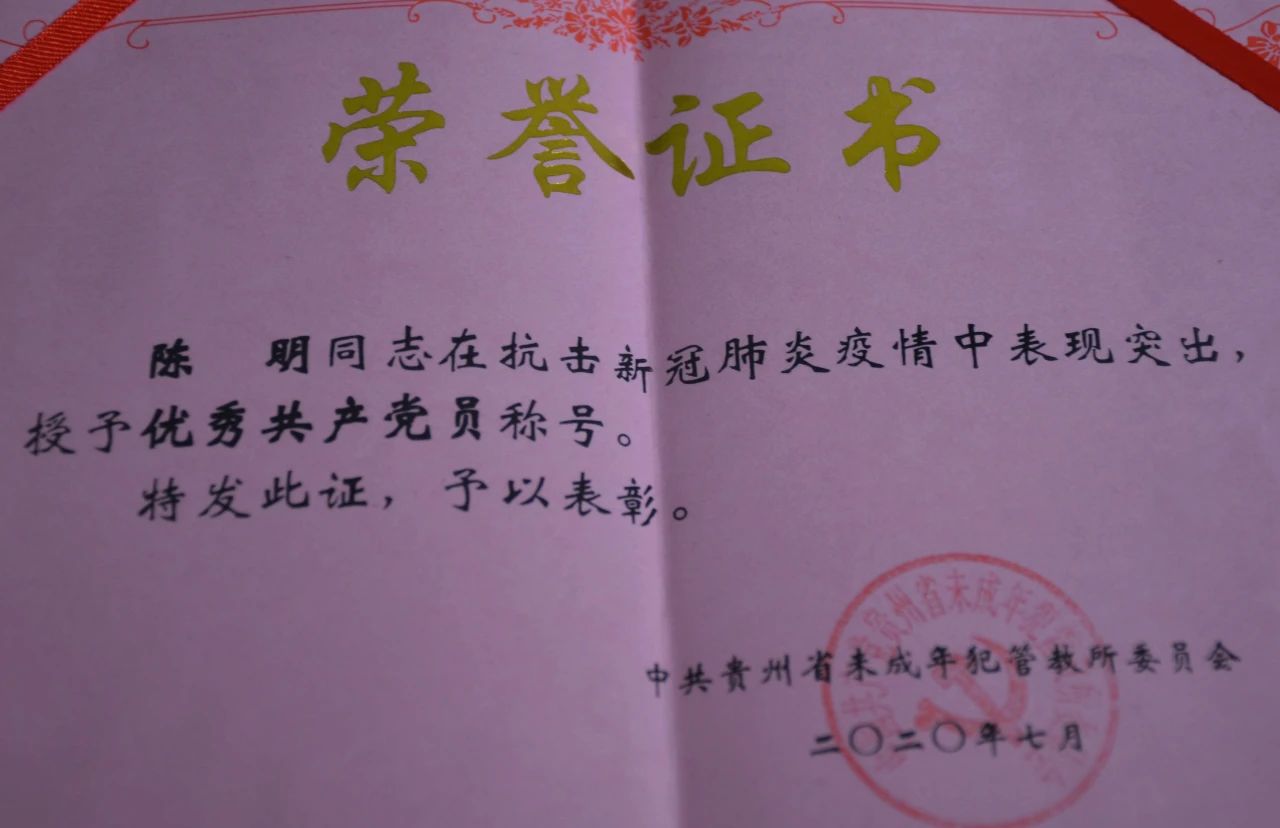 荣誉证书
陈 明同志在抗击新冠肺炎疫情中表现突出，
授予优秀共产党员称号。
特发此证，予以表彰。
中共贵州省未成年犯管教所委员会
二〇二〇年七月